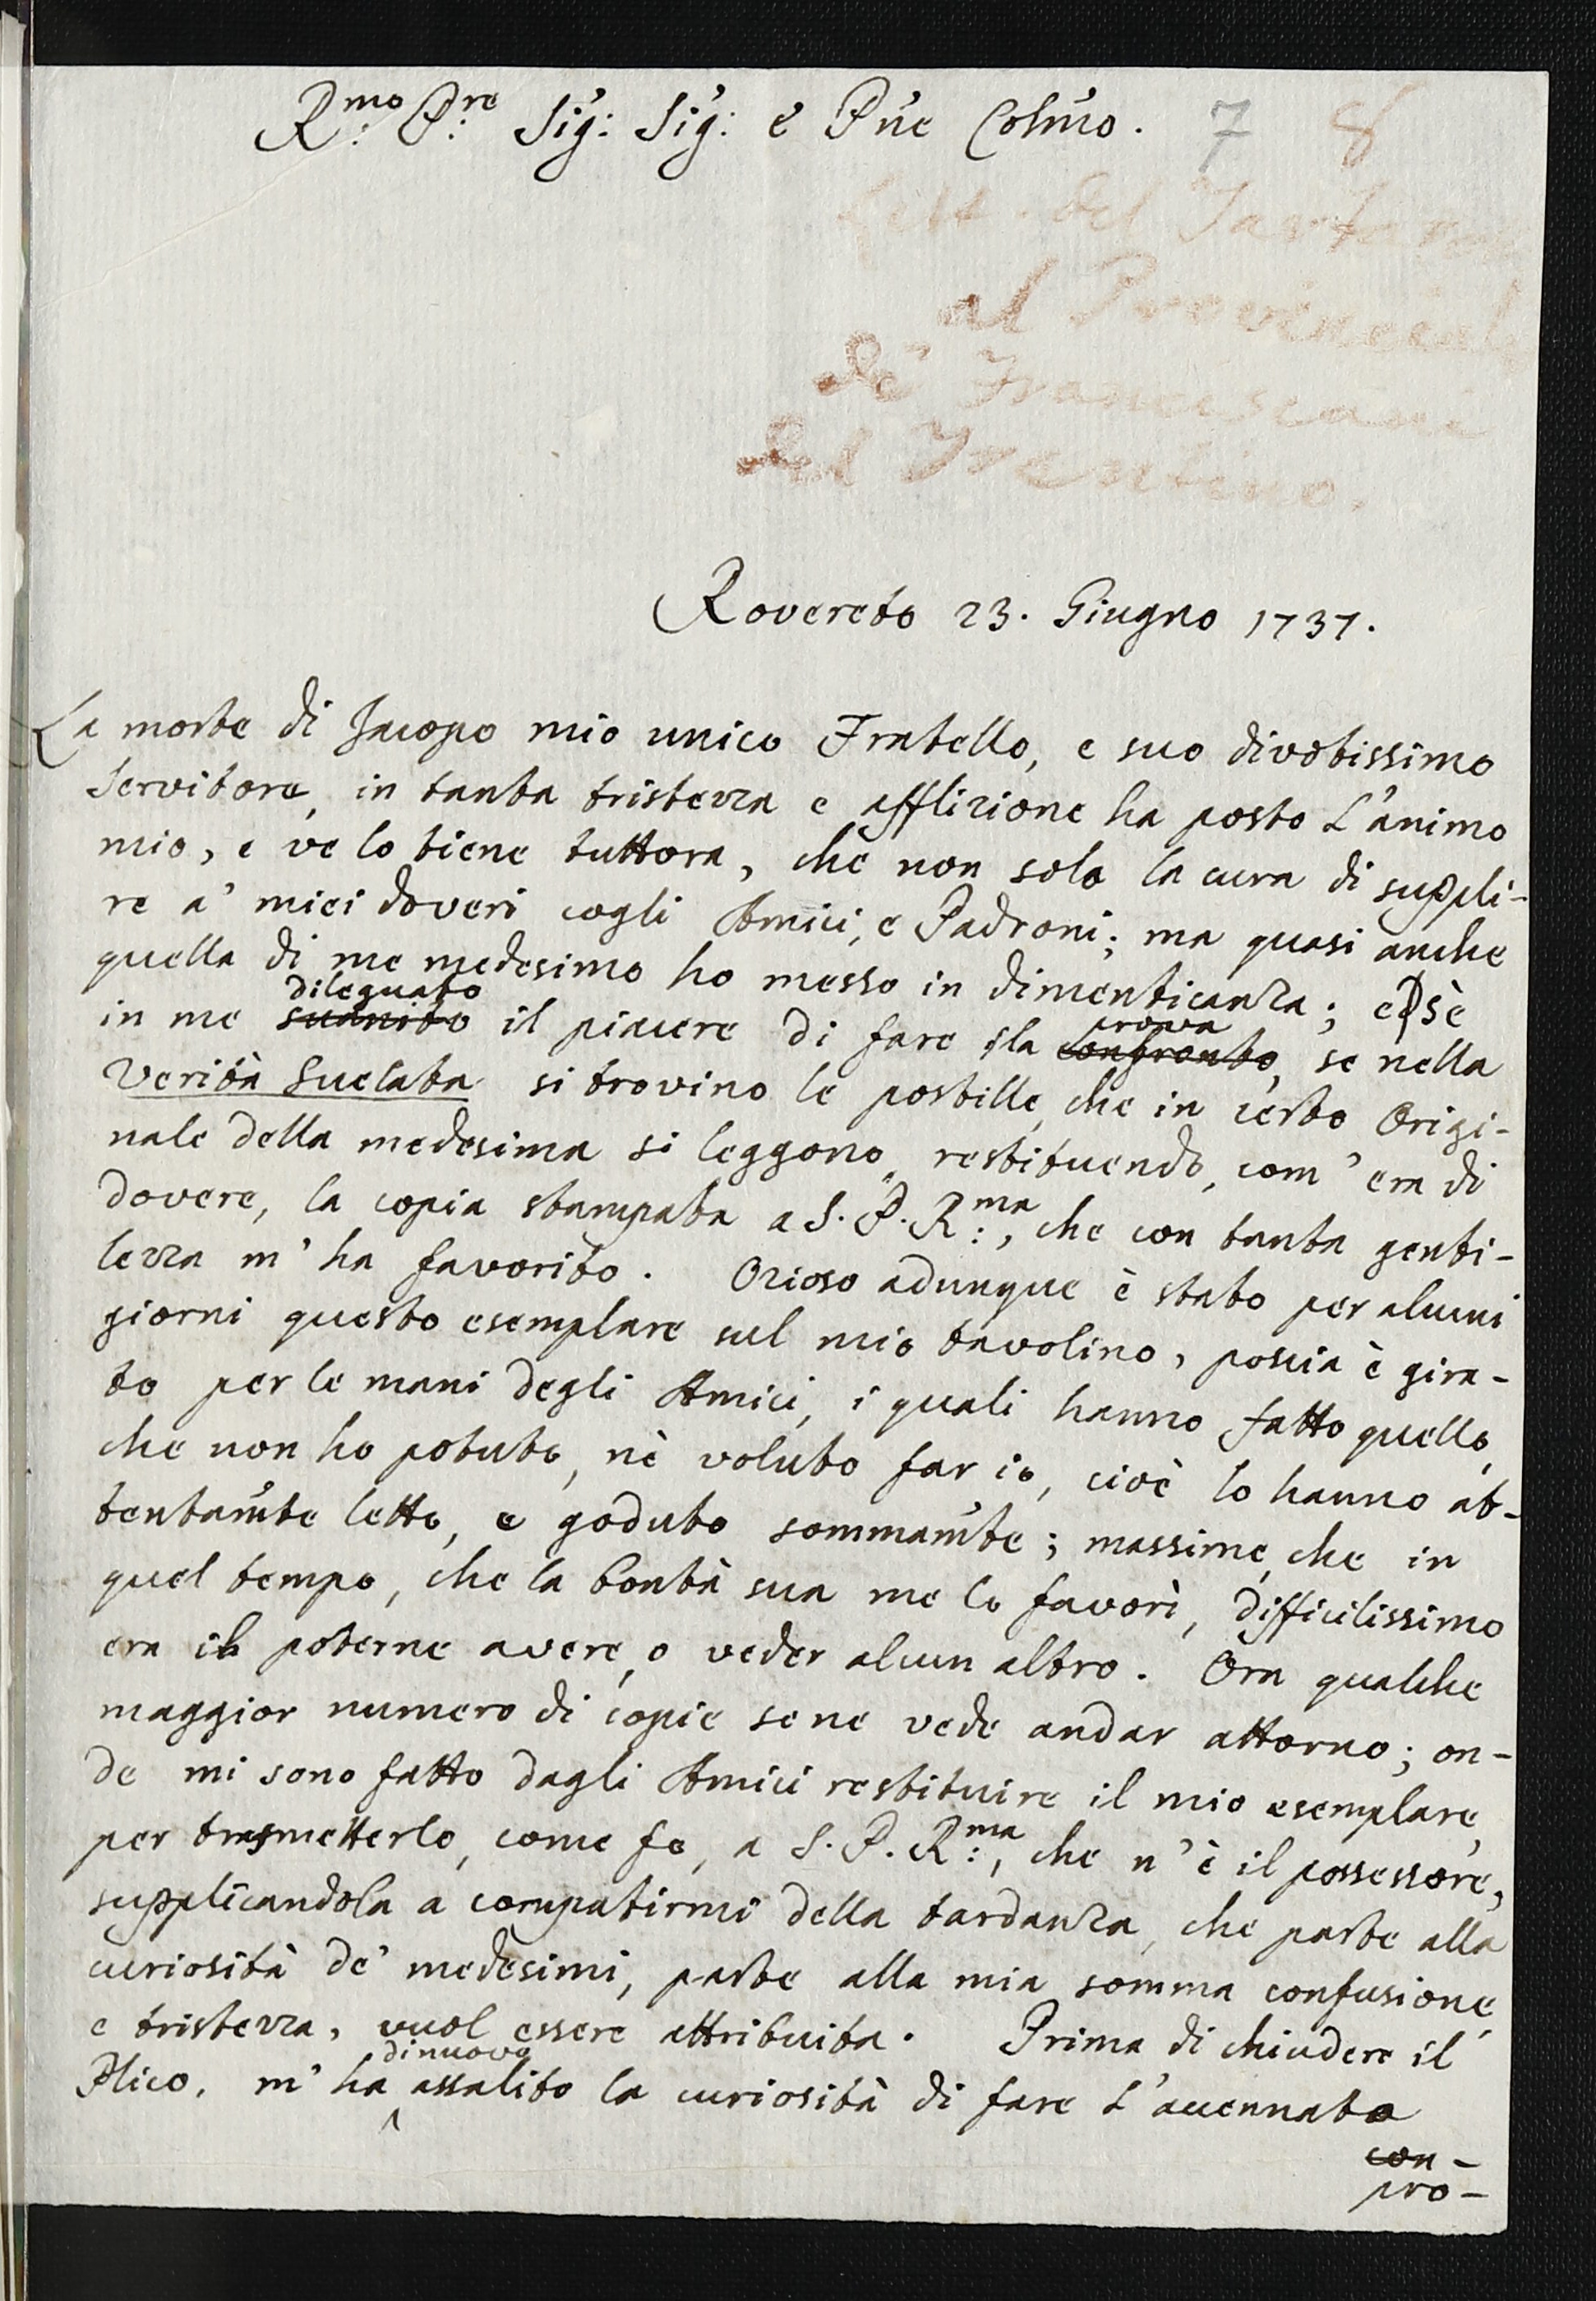 R:mo P:re Sig: Sig: e Pne Colmo. 7 8
Lett. del Tartarotti
al Provinciale
de' Francescani
del Trentino.
Rovereto 23. Giugno 1737.
La morte di Jacopo mio unico Fratello, e suo divotissimo
Servitore, in tanta tristezza e afflizione ha posto l'animo
mio, e ve lo tiene tuttora, che non solo la cura di suppli-
re a' miei doveri cogli Amici, e Padroni; ma quasi anche
quella di me medesimo ho messo in dimenticanza; e s'è
dileguato
in me suanito il piacere di fare la confronto, se nella
prova
Verità Suelata si trovino le postille, che in certo Origi-
nale della medesima si leggono, restituendo, com' era di
dovere, la copia stampata a S. P. R:ma, che con tanta genti-
lezza m' ha favorito. Ozioso adunque è stato per alcuni
giorni questo esemplare sul mio tavolino, poscia è gira-
to per le mani degli Amici, i quali hanno fatto quello,
che non ho potuto, nè voluto far io, cioè lo hanno at-
tentamte letto, e goduto sommamte; massime, che in
quel tempo, che la bontà sua me lo favorì, difficilissimo
era il poterne avere, o veder alcun altro. Ora qualche
maggior numero di copie se ne vede andar attorno; on-
de mi sono fatto dagli Amici restituire il mio esemplare,
per trasmetterlo, come fo, a S. P. R:ma, che n' è il possessore,
supplicandola a compatirmi della tardanza, che parte alla
curiosità de' medesimi, parte alla mia somma confusione,
e tristezza, vuol essere attribuita. Prima di chiudere il
dinuovo
Plico, m' ha assalito la curiosità di fare l'accennata
con-
pro-